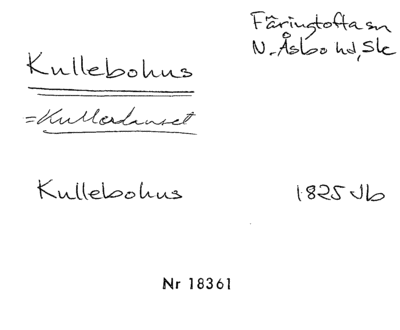 Färingtofta sn
N. Åsbo hd, Sk
Kullebohus
= Kullahuset
Kullebohus 1825 Jb
Nr 18361